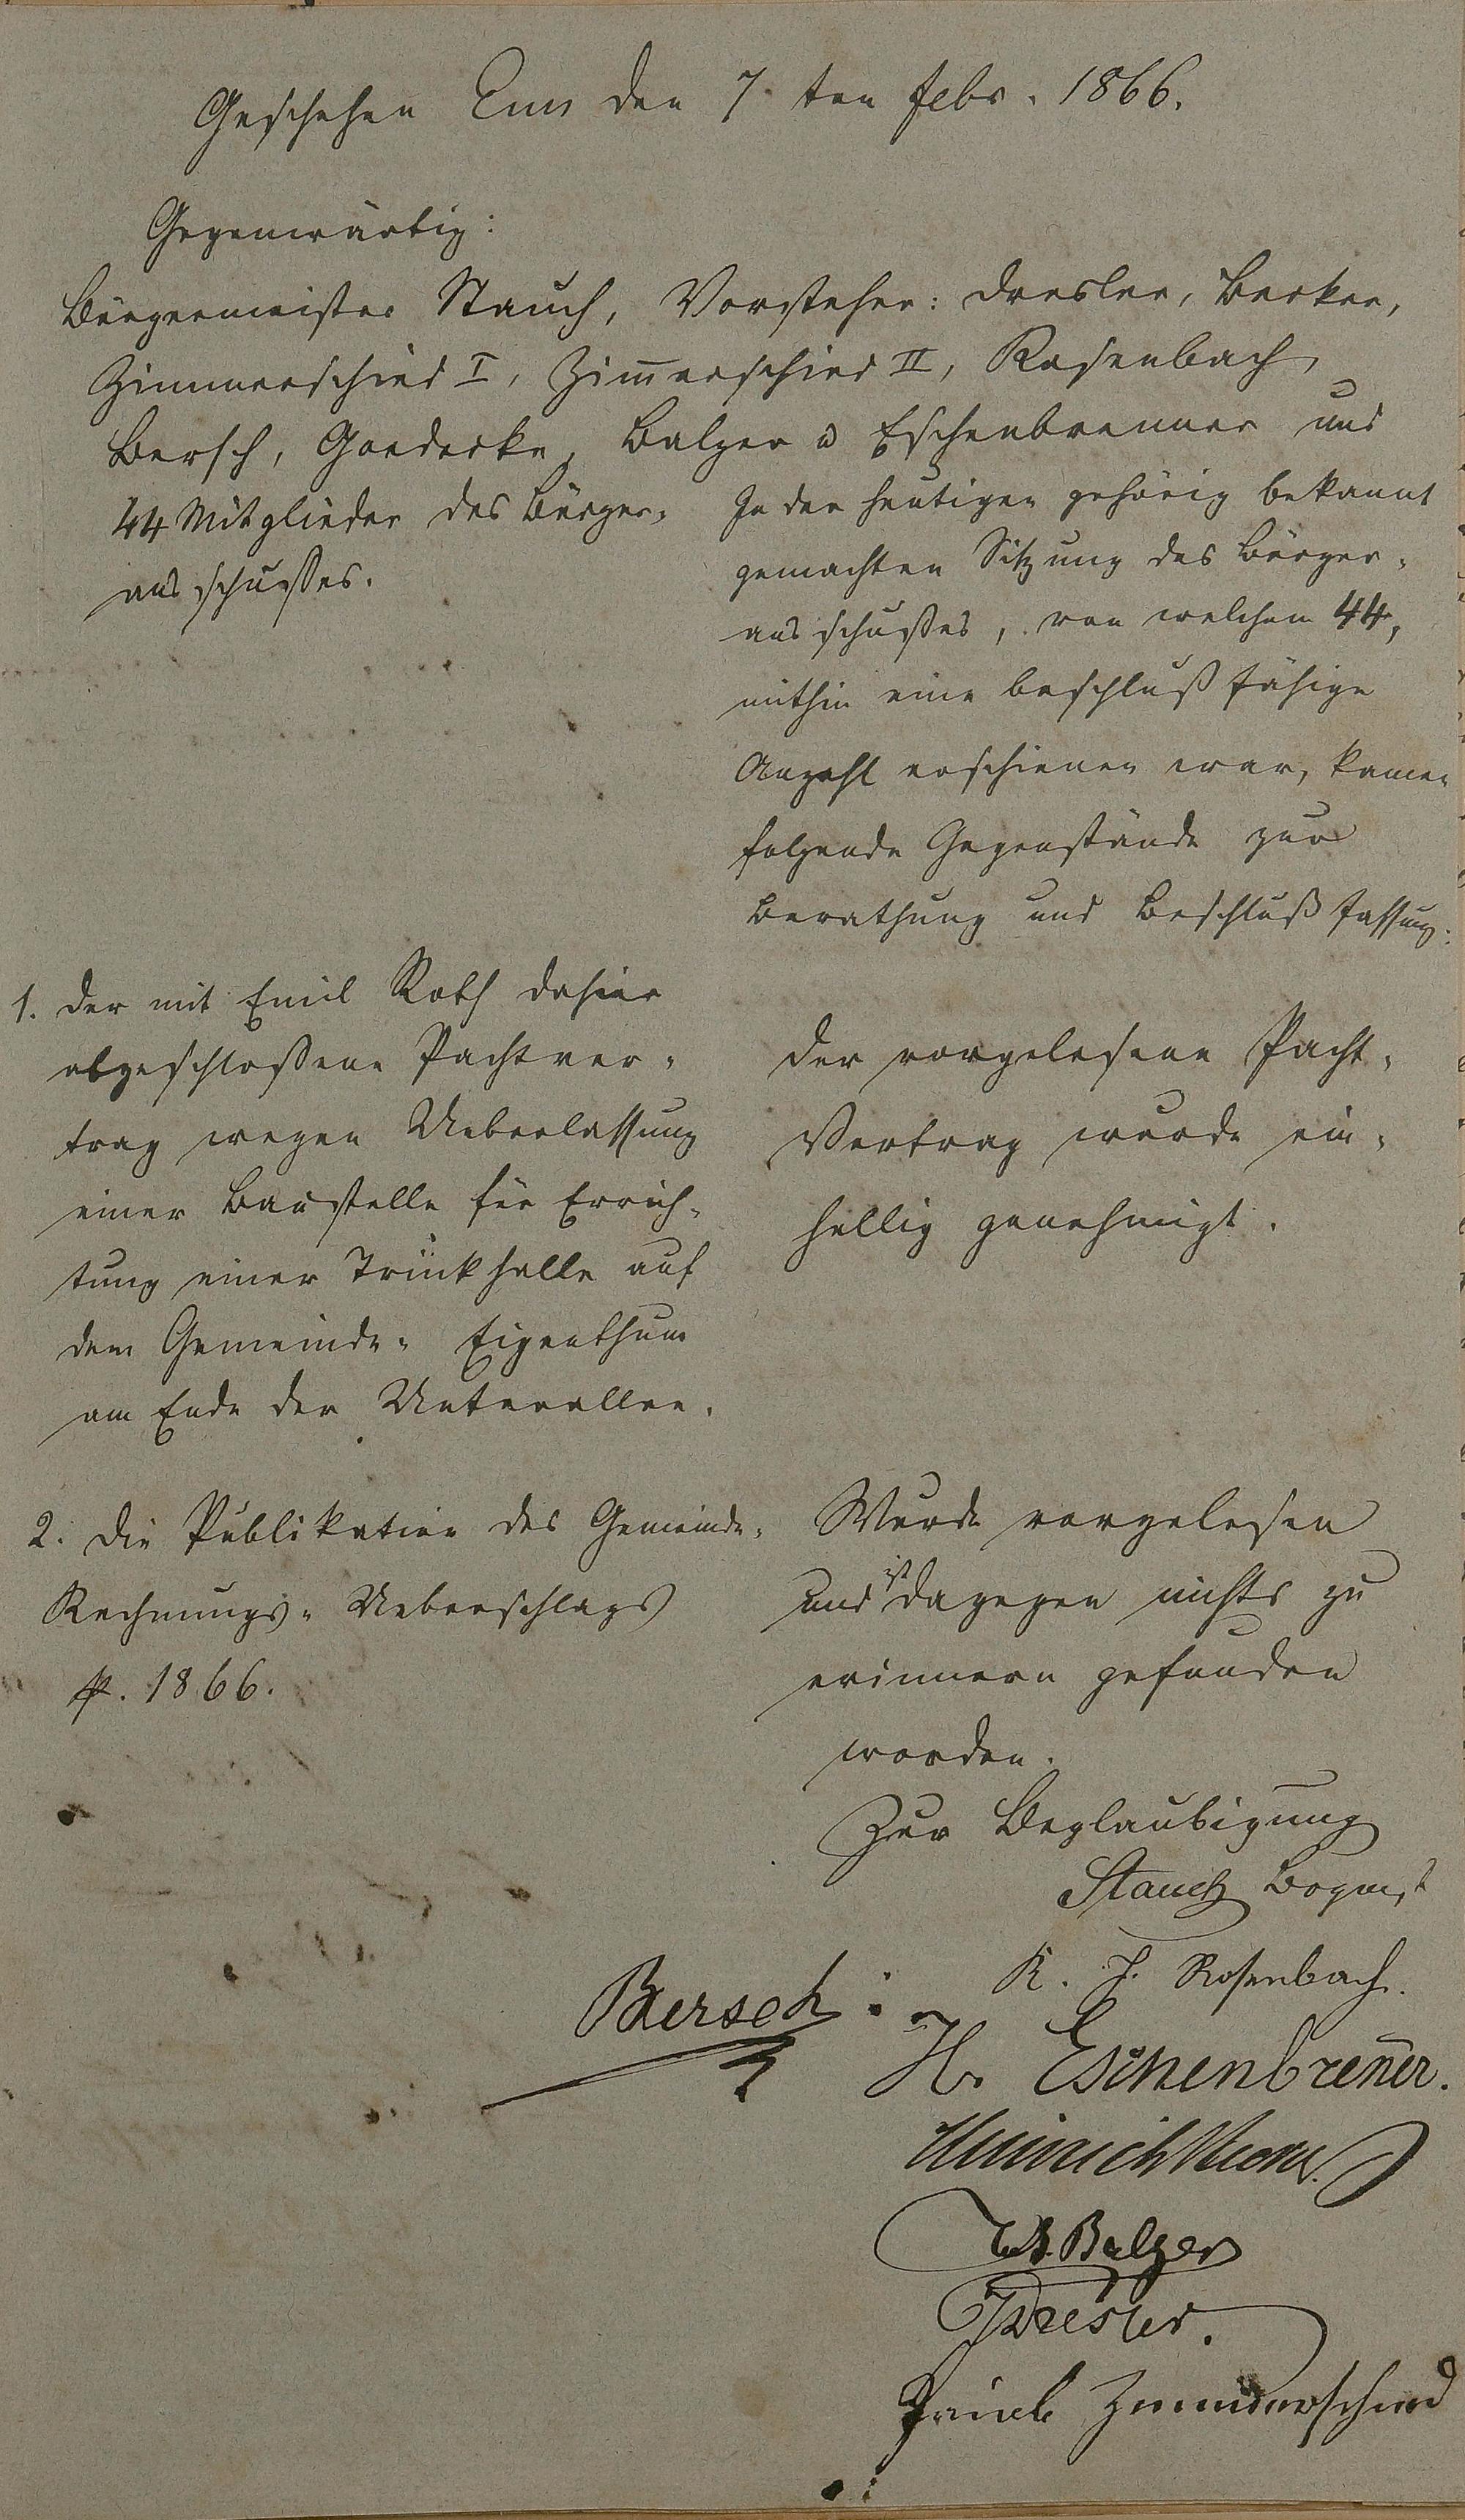 Geschehen Ems den 7. ten Febr. 1866.
Gegenwärtig:
Bürgermeister Stauch, Vorsteher: Dresler, Becker,
Zimmerschied I, Zim̄erschied II, Rosenbach,
Bersch, Goedecke, Balzer u Eschenbrenner und
44 Mitglieder des Bürger-
ausschußes.
In der heutigen gehörig bekannt
gemachten Sitzung des Bürger-
ausschußes, von welchem 44,
mithin eine beschlußfähige
Anzahl erschienen war, kamen
folgende Gegenstände zur
Berathung und Beschlußfassung:
1. Der mit Emil Roth dahier
abgeschloßene Pachtver-
trag wegen Ueberlassung
einer Baustelle für Errich-
tung einer Trinkhalle auf
dem Gemeinde-Eigenthum
am Ende der Unterallee.
Der vorgelesene Pacht-
Vertrag wurde ein-
hellig genehmigt.
2. Die Publikation des Gemeinde-
Rechnungs-Ueberschlags
p. 1866.
Wurde vorgelesen
und ist dagegen nichts zu
erinnern gefunden
worden.
Zur Beglaubigung
Stauch Bgmst
K. J. Rosenbach.
Bersch
H. Eschenbren̄er.
Heinrich
Balzer
Dresler.
Jacob Zimmerschied